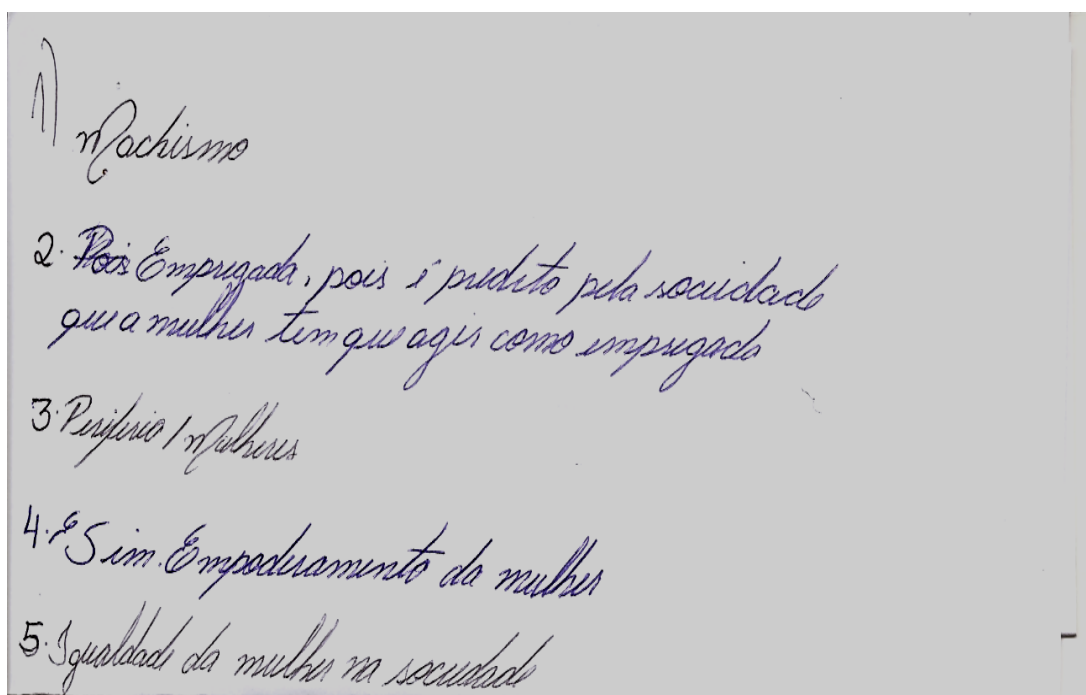 1)
Machismo
2. Pois Empregada, pois é predito pela sociedade
que a mulher tem que agir como empregada
3. Periferia / Mulheres
4. É Sim. Empoderamento da mulher
5. Igualdade da mulher na sociedade